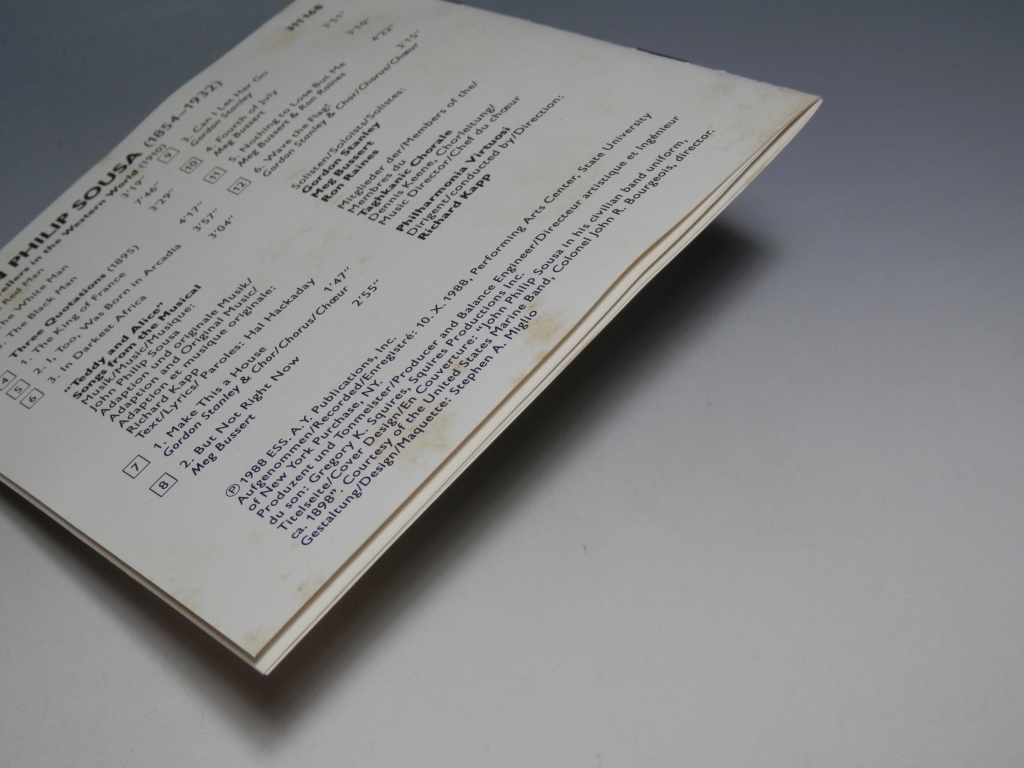 311168
N PHILIP SOUSA (1854–1932)
in the Western World (1910)
Red Man 3'19"
The White Man 7'46"
The Black Man 3'29"
Three Quotations (1895)
4 1. The King of France 4'17"
5 2. I, Too, Was Born in Arcadia 3'57"
6 3. In Darkest Africa 3'04"
"Teddy and Alice"
Songs from the Musical
Musik/Music/Musique:
John Philip Sousa
Adaption und Originale Musik/
Adaption and Original Music/
Adaption et musique originale:
Richard Kapp
Text/Lyrics/Paroles: Hal Hackaday
7 1. Make This a House 1'47"
Gordon Stanley & Chor/Chorus/Chœur
8 2. But Not Right Now 2'55"
Meg Bussert
9 3. Can I Let Her Go 3'51"
Gordon Stanley
10 4. Fourth of July 3'10"
Meg Bussert
11 5. Nothing to Lose But Me 4'22"
Meg Bussert & Ron Raines
12 6. Wave the Flag! 3'15"
Gordon Stanley & Chor/Chorus/Chœur
Solisten/Soloists/Solistes:
Gordon Stanley
Meg Bussert
Ron Raines
Mitglieder der/Members of the/
Membres du
Taghkanic Chorale
Dennis Keene, Chorleitung/
Music Director/Chef du chœur
Philharmonia Virtuosi
Dirigent/conducted by/Direction:
Richard Kapp
℗ 1988 ESS. A.Y. Publications, Inc.
Aufgenommen/Recorded/Enregistré: 10. X. 1988, Performing Arts Center, State University
of New York Purchase, NY.
Produzent und Tonmeister/Producer and Balance Engineer/Directeur artistique et Ingénieur
du son: Gregory K. Squires Productions Inc.
Titelseite/Cover Design/En Converture: "John Philip Sousa in his civilian band uniform,
ca. 1898". Courtesy of the United States Marine Band, Colonel John R. Bourgeois, director.
Gestaltung/Design/Maquette: Stephen A. Miglio